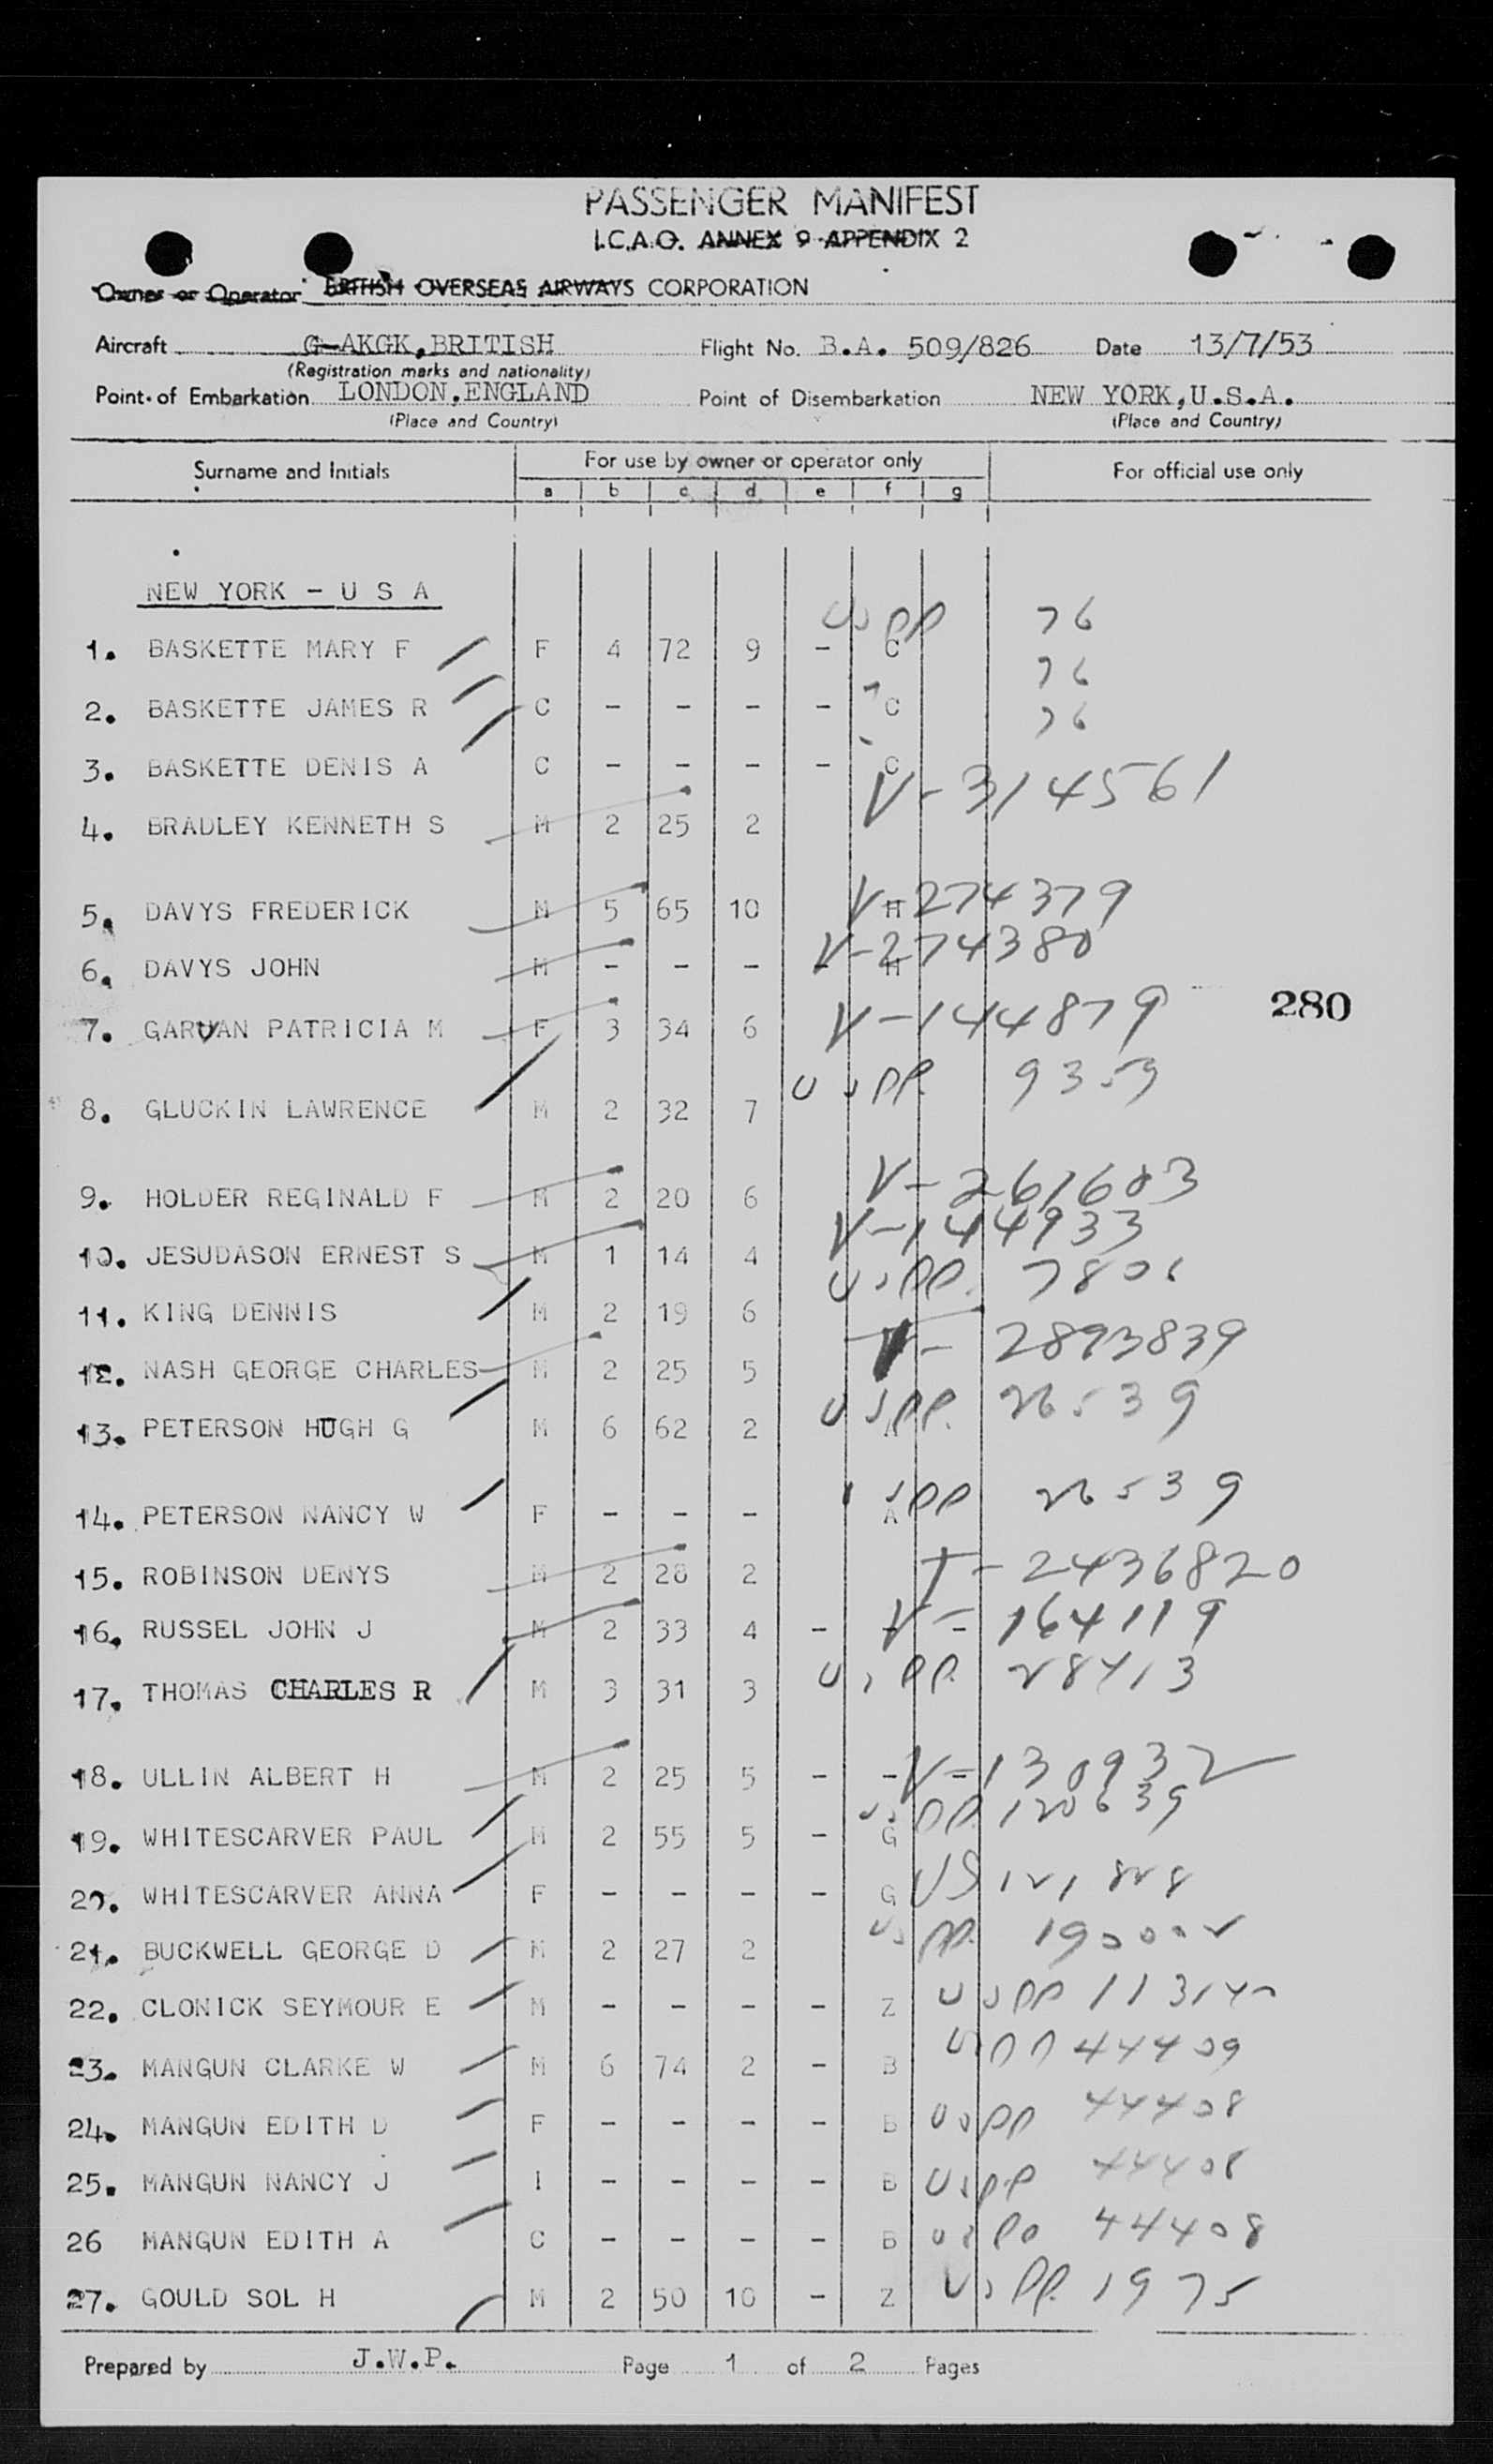 PASSENGER MANIFEST
I.C.A.O. ANNEX 9 APPENDIX 2
Owner or Operator BRITISH OVERSEAS AIRWAYS CORPORATION
Aircraft G-AKGK, BRITISH Flight No. B.A. 509/826 Date 13/7/53
(Registration marks and nationality)
Point of Embarkation LONDON, ENGLAND Point of Disembarkation NEW YORK, U.S.A.
(Place and Country) (Place and Country)
Surname and Initials For use by owner or operator only For official use only
a b c d e f g
NEW YORK - U S A
1. BASKETTE MARY F F 4 72 9 - C uspp 76
2. BASKETTE JAMES R C - - - - C 76
3. BASKETTE DENIS A C - - - - C 76
4. BRADLEY KENNETH S M 2 25 2 V-314561
5. DAVYS FREDERICK M 5 65 10 H V-274379
6. DAVYS JOHN M - - - - H V-274380
7. GARVAN PATRICIA M F 3 34 6 V-144879
280
8. GLUCKIN LAWRENCE M 2 32 7 uspp. 9359
9. HOLDER REGINALD F M 2 20 6 V-261683
10. JESUDASON ERNEST S M 1 14 4 V-144933
11. KING DENNIS M 2 19 6 uspp. 7806
12. NASH GEORGE CHARLES M 2 25 5 V- 2893839
13. PETERSON HUGH G M 6 62 2 A uspp. 26539
14. PETERSON NANCY W F - - - A uspp 26539
15. ROBINSON DENYS M 2 28 2 T-2436820
16. RUSSEL JOHN J M 2 33 4 - - - V-164119
17. THOMAS CHARLES R M 3 31 3 uspp. 28413
18. ULLIN ALBERT H M 2 25 5 - - - V-130932
19. WHITESCARVER PAUL M 2 55 5 - G uspp. 120639
20. WHITESCARVER ANNA F - - - - G US 121828
21. BUCKWELL GEORGE D M 2 27 2 uspp. 190002
22. CLONICK SEYMOUR E M - - - - Z uspp
23. MANGUN CLARKE W M 6 74 2 - B uspp 44409
24. MANGUN EDITH D F - - - - B uspp 44408
25. MANGUN NANCY J I - - - - B uspp 44408
26 MANGUN EDITH A C - - - - B uspp 44408
27. GOULD SOL H M 2 50 10 - Z uspp. 1975
Prepared by J.W.P. Page 1 of 2 Pages